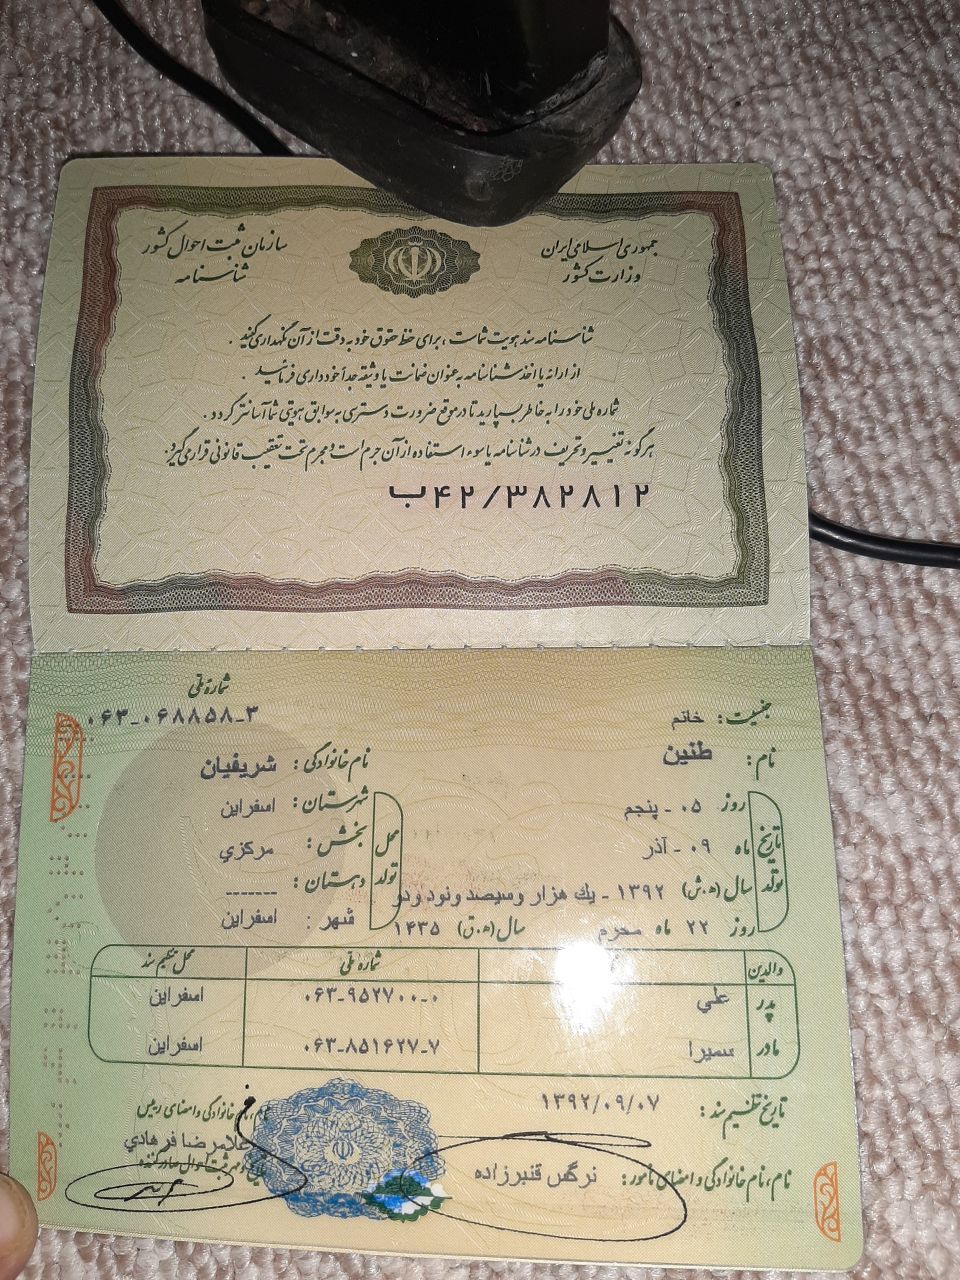 جمهوری اسلامی ایران
وزارت کشور
سازمان ثبت احوال کشور
شناسنامه
شناسنامه سند هویت شماست ، برای حفظ حقوق خود به دقت از آن نگهداری کنید .
از ارائه یا اخذ شناسنامه به عنوان ضمانت یا وثیقه جداً خودداری فرمائید .
شماره ملی خود را به خاطر بسپارید تا در موقع ضرورت دسترسی به سوابق هویتی شما آسانتر گردد .
هرگونه تغییر و تحریف در شناسنامه یا سوء استفاده از آن جرم است و مجرم تحت تعقیب قانونی قرار می گیرد.
ب۴۲/۳۸۲۸۱۲
شماره ملی
۰۶۳-۰۶۸۸۵۸-۳
جنسیت: خانم
نام: طنین
نام خانوادگی: شریفیان
تاریخ تولد
روز ۰۵ - پنجم
ماه ۰۹ - آذر
سال (ه.ش) ۱۳۹۲ - یك هزار وسیصد ونود ودو
روز ۲۲ ماه محرم سال (ه.ق) ۱۴۳۵
محل تولد
شهرستان: اسفراین
بخش: مرکزي
دهستان: -------
شهر: اسفراین
والدین شماره ملی محل تنظیم سند
پدر علي ۰۶۳-۹۵۲۷۰۰-۰ اسفراین
مادر سمیرا ۰۶۳-۸۵۱۶۲۷-۷ اسفراین
تاریخ تنظیم سند: ۱۳۹۲/۰۹/۰۷
نام، نام خانوادگی و امضای مامور: نرگس قنبرزاده
نام خانوادگی و امضای رییس
غلامرضا فرهادي